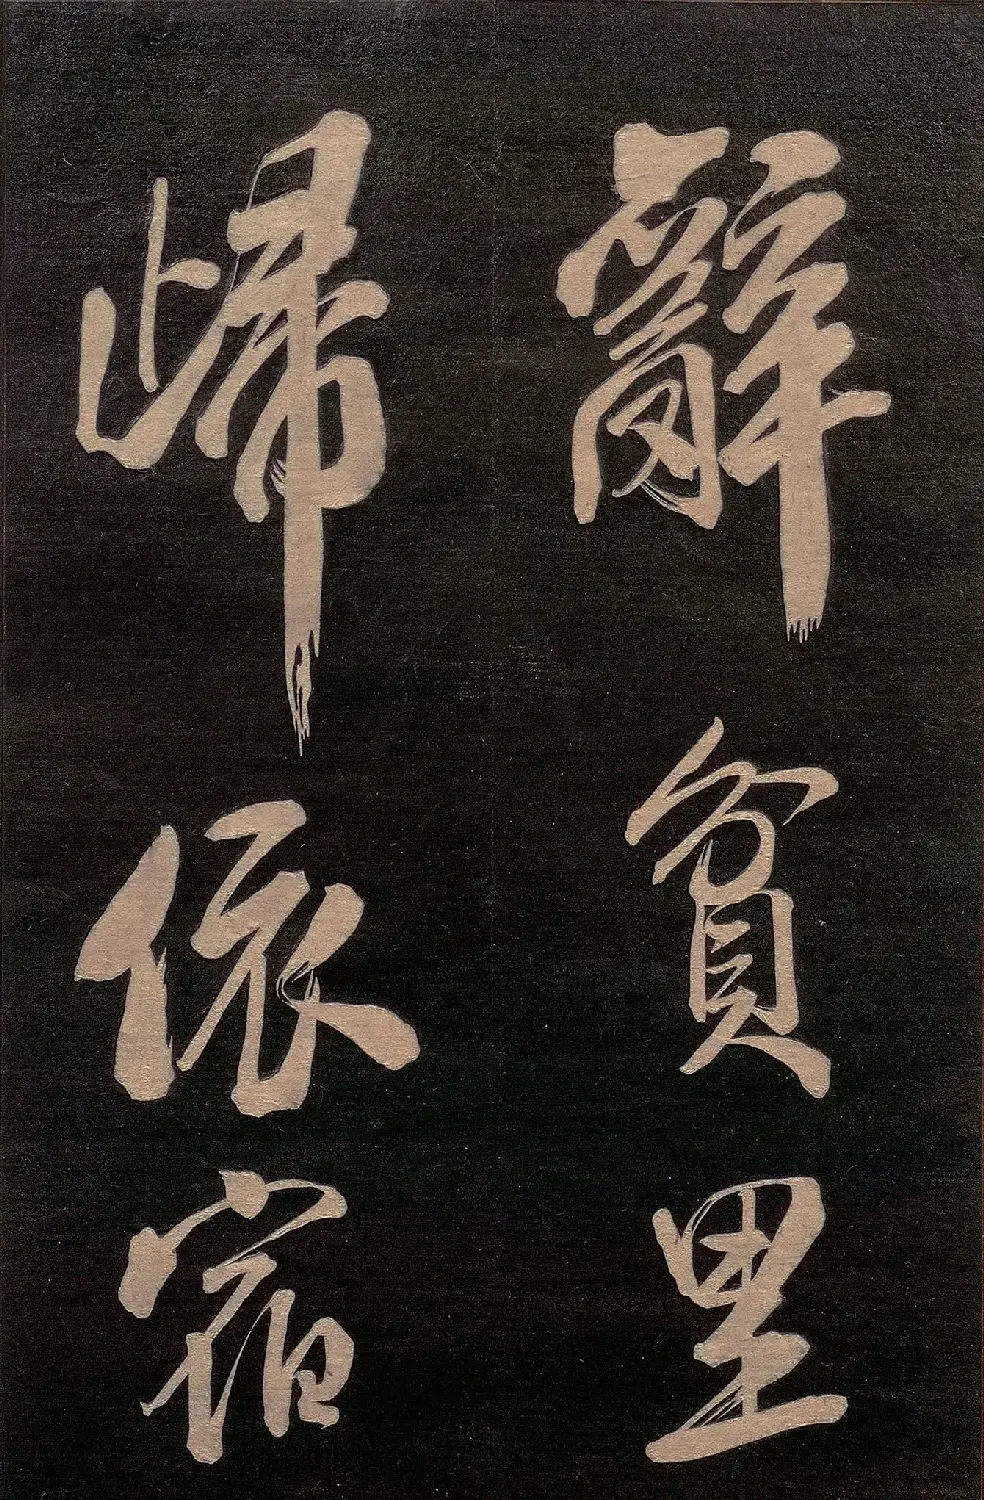 辭貧里
歸依宿